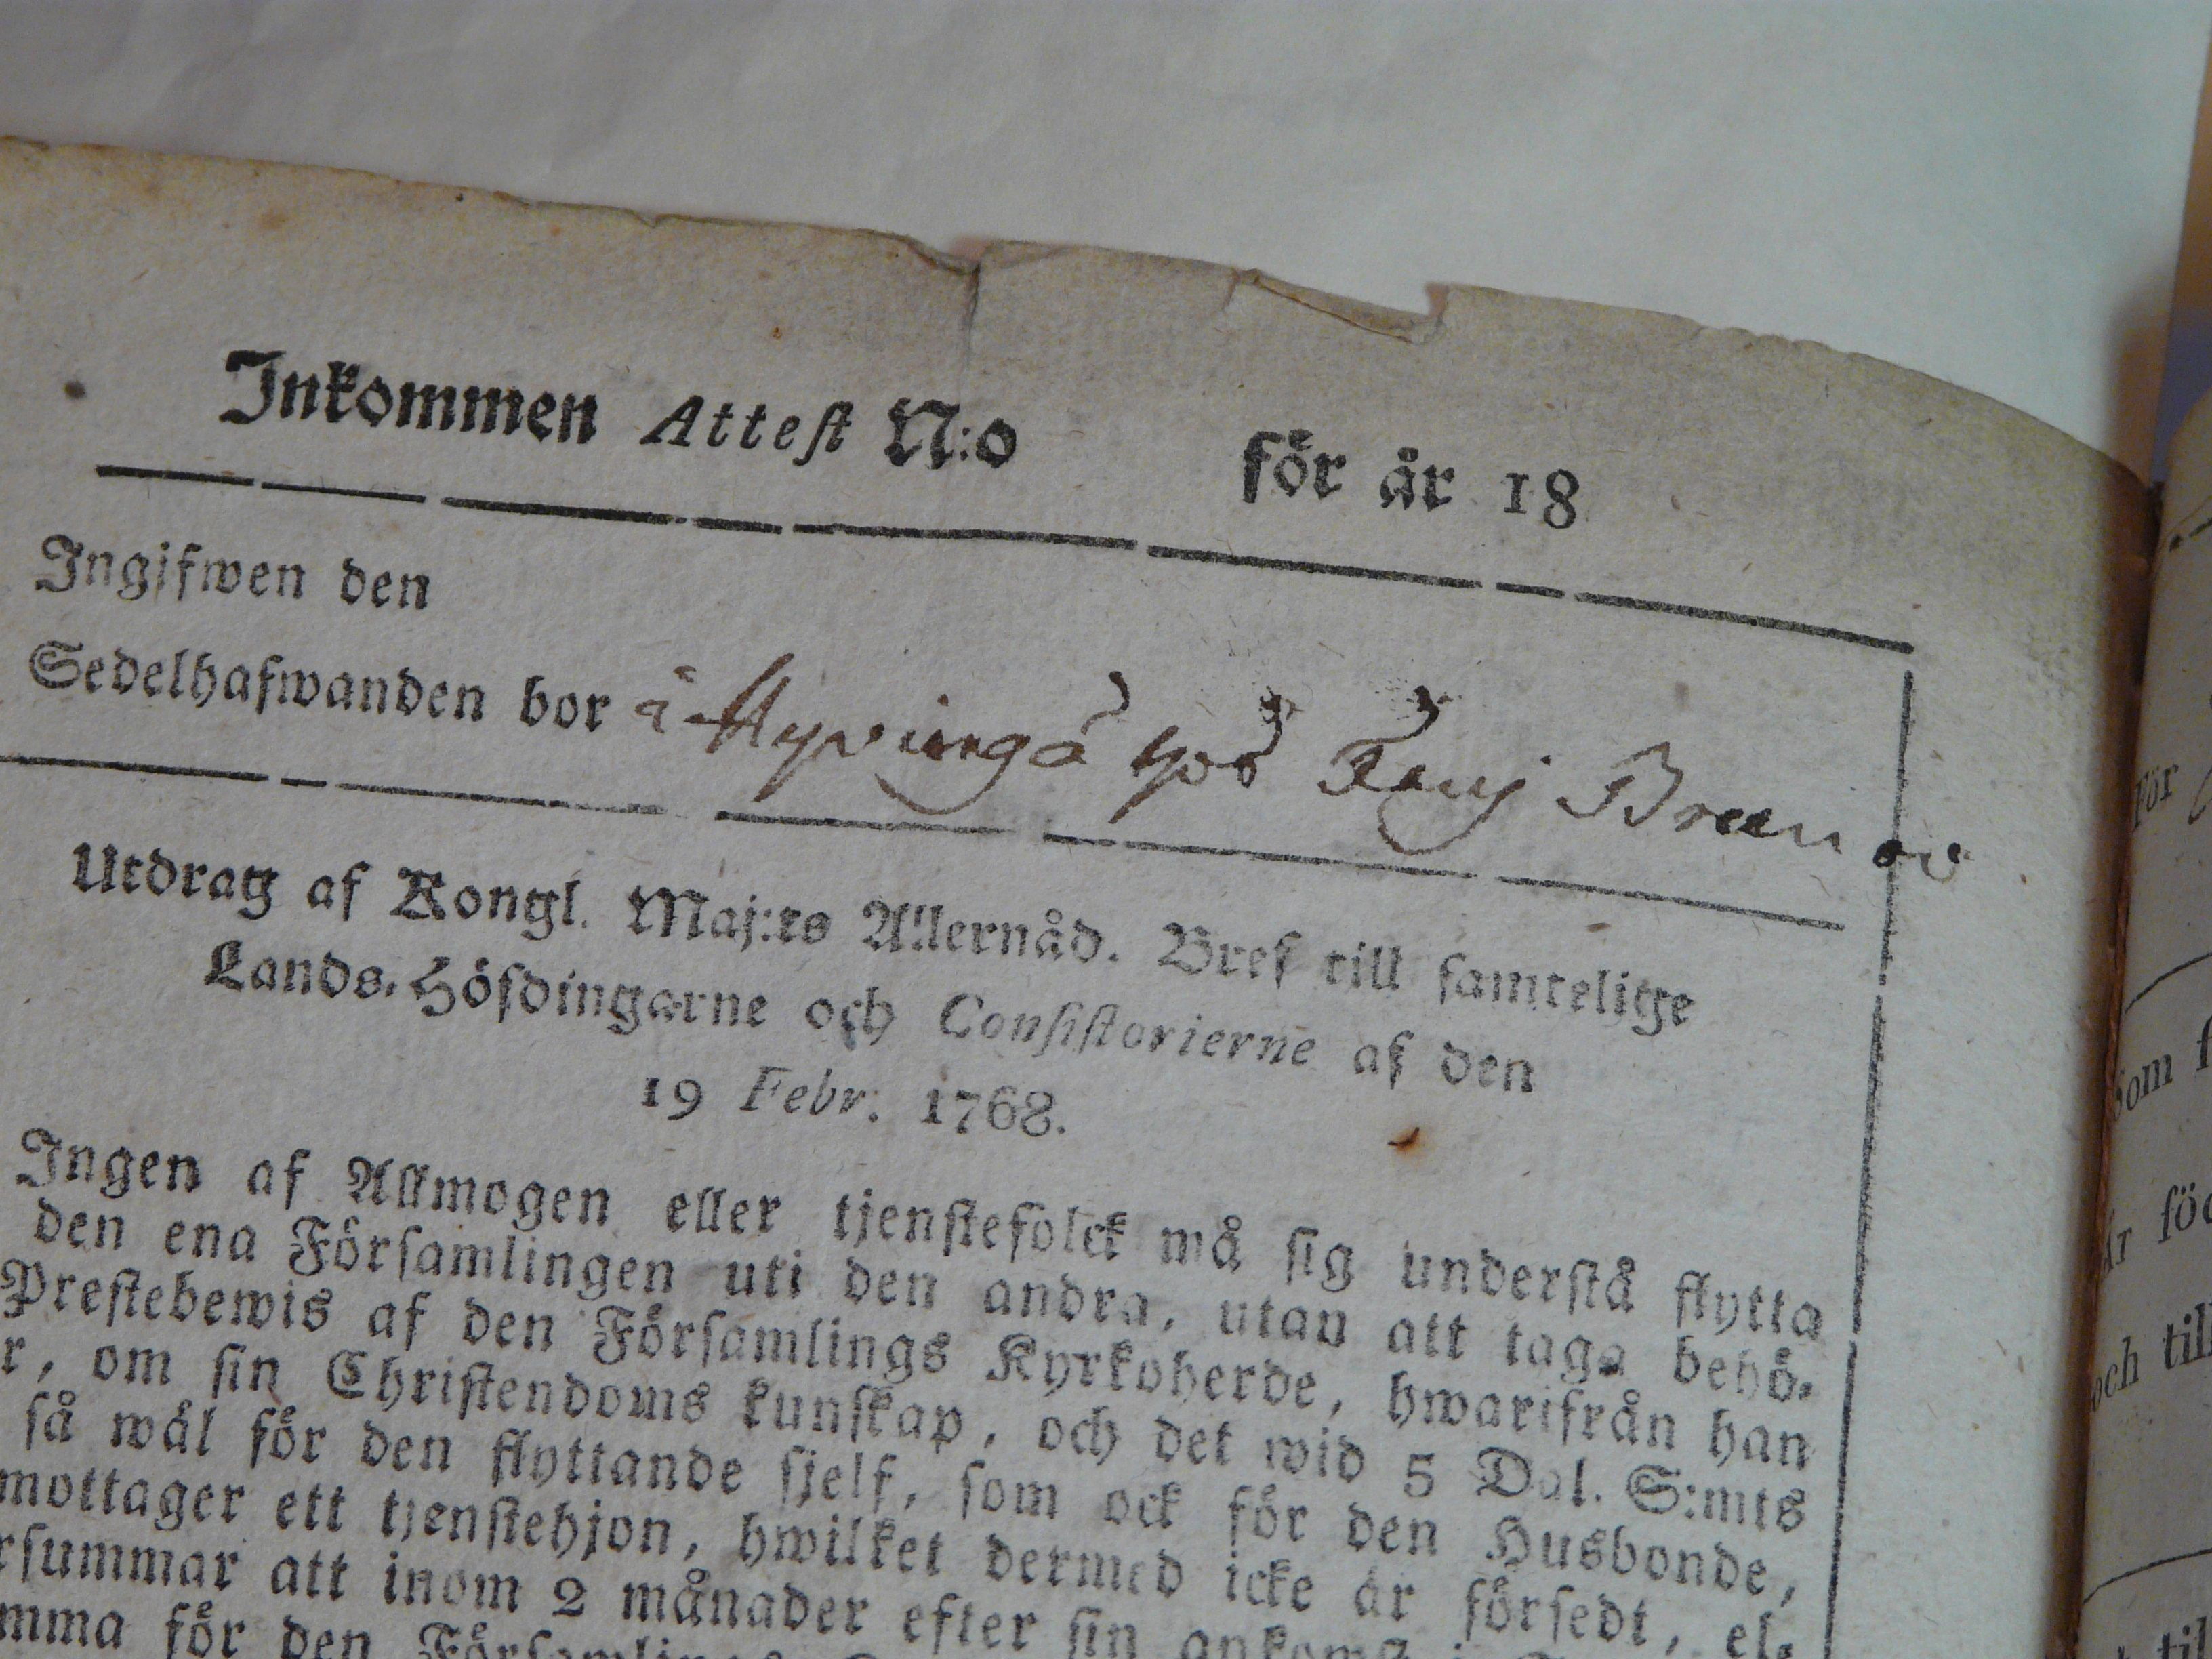 Inkommen Attest N:o för år 18
Ingifwen den
Sedelhafwanden bor å hos
Utdrag af Kongl. Maj:ts Allernåd. Bref till samtelige
Lands-Höfdingarne och Consistorierne af den
19 Febr. 1768.
Ingen af Allmogen eller tjenstefolck må sig understå flytta
den ena Församlingen uti den andra, utan att taga behö-
Prestebewis af den Församlings Kyrkoherde, hwarifrån han
r, om sin Christendoms kunskap, och det wid 5 Dal. S:mts
så wäl för den flyttande sjelf, som ock för den Husbonde,
mottager ett tjenstehjon, hwilket dermed icke är försedt, el-
rsummar att inom 2 månader efter sin ankomst i
mma för den
För
Som f
Är föd
och till